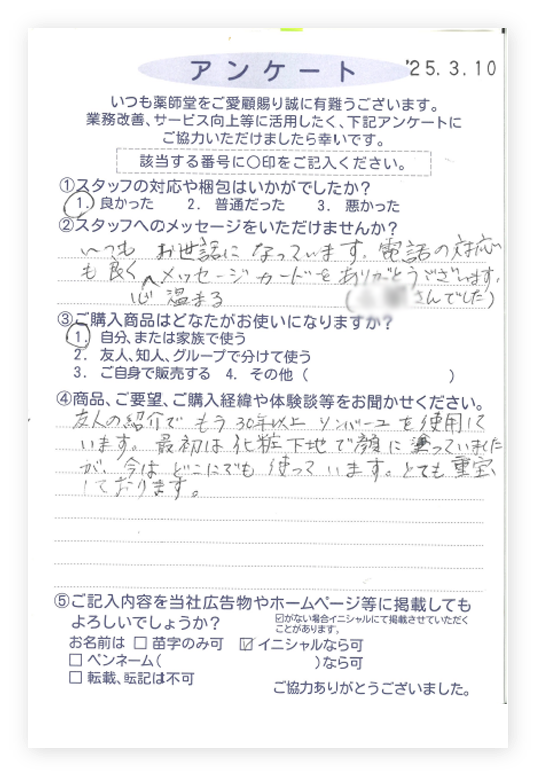 アンケート
'25.3.10
いつも薬師堂をご愛顧賜り誠に有難うございます。
業務改善、サービス向上等に活用したく、下記アンケートに
ご協力いただけましたら幸いです。
該当する番号に〇印をご記入ください。
①スタッフの対応や梱包はいかがでしたか?
1. 良かった 2. 普通だった 3. 悪かった
②スタッフへのメッセージをいただけませんか?
いつも お世話に なっています。電話の対応
も良く メッセージカードを ありがとうございます。
心温まる
( さんでした)
③ご購入商品はどなたがお使いになりますか?
1. 自分、または家族で使う
2. 友人、知人、グループで分けて使う
3. ご自身で販売する 4. その他( )
④商品、ご要望、ご購入経緯や体験談等をお聞かせください。
友人の紹介で もう 30年以上 ソンバーユ を使用して
います。最初は 化粧下地で 顔に 塗っていました
が、今は どこにでも 使って います。とても 重宝
しております。
⑤ご記入内容を当社広告物やホームページ等に掲載しても
よろしいでしょうか?
☑がない場合イニシャルにて掲載させていただく
ことがあります。
お名前は □ 苗字のみ可 ☑ イニシャルなら可
□ ペンネーム( )なら可
□ 転載、転記は不可
ご協力ありがとうございました。